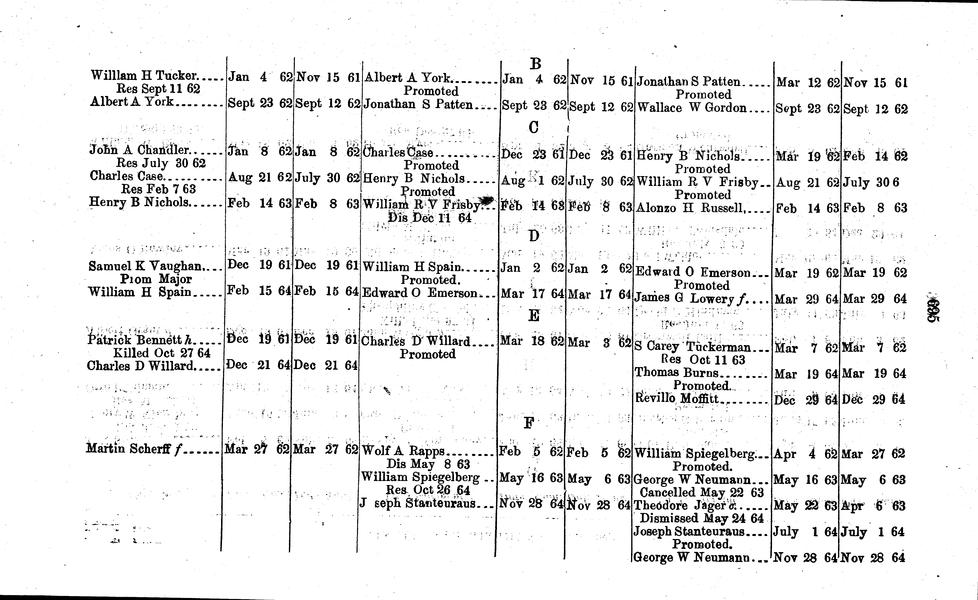 B
William H Tucker..... Jan 4 62 Nov 15 61 Albert A York........ Jan 4 62 Nov 15 61 Jonathan S Patten.... Mar 12 62 Nov 15 61
Res Sept 11 62 Promoted Promoted
Albert A York....... Sept 23 62 Sept 12 62 Jonathan S Patten.... Sept 23 62 Sept 12 62 Wallace W Gordon.... Sept 23 62 Sept 12 62
C
John A Chandler..... Jan 8 62 Jan 8 62 Charles Case........ Dec 23 61 Dec 23 61 Henry B Nichols..... Mar 19 62 Feb 14 62
Res July 30 62 Promoted Promoted
Charles Case........ Aug 21 62 July 30 62 Henry B Nichols..... Aug 1 62 July 30 62 William R V Frisby.. Aug 21 62 July 30 6
Res Feb 7 63 Promoted Promoted
Henry B Nichols..... Feb 14 63 Feb 8 63 William R V Frisby... Feb 14 63 Feb 8 63 Alonzo H Russell,.... Feb 14 63 Feb 8 63
Dis Dec 11 64
D
Samuel K Vaughan.... Dec 19 61 Dec 19 61 William H Spain..... Jan 2 62 Jan 2 62 Edward O Emerson... Mar 19 62 Mar 19 62
Prom Major Promoted. Promoted
William H Spain..... Feb 15 64 Feb 15 64 Edward O Emerson... Mar 17 64 Mar 17 64 James G Lowery f.... Mar 29 64 Mar 29 64
E
Patrick Bennett h..... Dec 19 61 Dec 19 61 Charles D Willard.... Mar 18 62 Mar 3 62 S Carey Tuckerman... Mar 7 62 Mar 7 62
Killed Oct 27 64 Promoted Res Oct 11 63
Charles D Willard..... Dec 21 64 Dec 21 64 Thomas Burns........ Mar 19 64 Mar 19 64
Promoted.
Revillo Moffitt........ Dec 29 64 Dec 29 64
F
Martin Scherff f...... Mar 27 62 Mar 27 62 Wolf A Rapps........ Feb 5 62 Feb 5 62 William Spiegelberg... Apr 4 62 Mar 27 62
Dis May 8 63 Promoted.
William Spiegelberg .. May 16 63 May 6 63 George W Neumann... May 16 63 May 6 63
Res Oct 26 64 Cancelled May 22 63
J seph Stanteuraus... Nov 28 64 Nov 28 64 Theodore Jager a..... May 22 63 Apr 6 63
Dismissed May 24 64
Joseph Stanteuraus.... July 1 64 July 1 64
Promoted.
George W Neumann... Nov 28 64 Nov 28 64